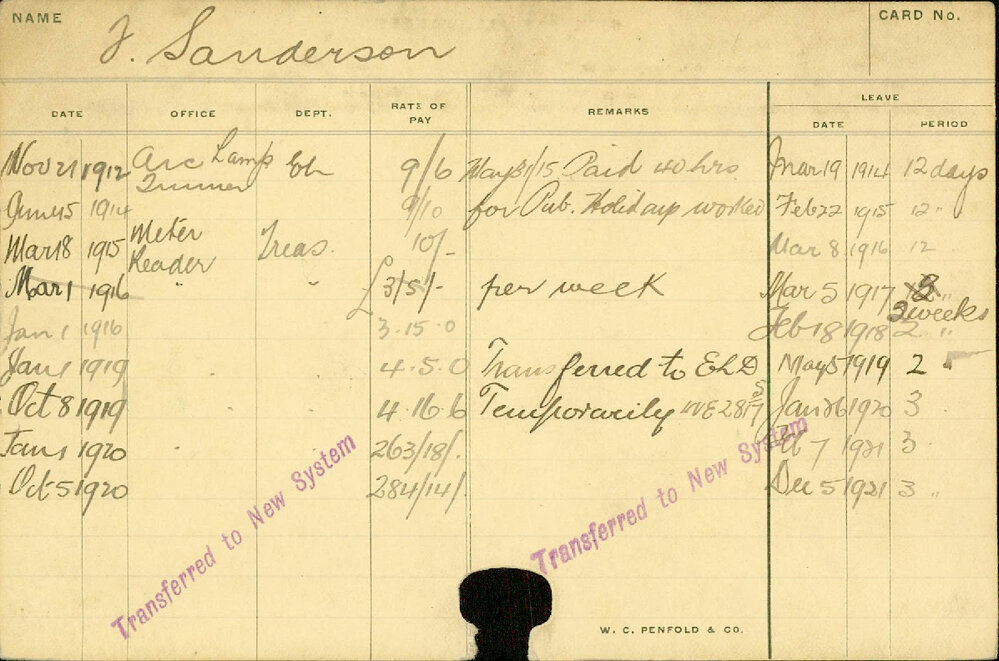 NAME
CARD No.
J. Sanderson
LEAVE
DATE OFFICE DEPT. RATE OF PAY REMARKS DATE PERIOD
Nov 21 1912 Arc Lamp Trimmer 9/6 May 31/15 Paid 40 hrs. Mar 19 1914 12 days
June 15 1914 9/10 for Pub. Holidays worked Feb 22 1915 12 "
Mar 18 1915 Meter Reader Treas. 10/- Mar 8 1916 12
Mar 1 1916 " " £3/5/- per week Mar 5 1917 3 weeks
Jan 1 1916 3.15.0 Feb 18 1918 2 "
Jan 1 1919 4.5.0 Transferred to ELD May 5 1919 2 "
Oct 8 1919 4.16.6 Temporarily WE 28/5/17 Jan 26 1920 3
Jan 1 1920 263/18/. 7 1921 3
Oct 5 1920 284/14/. Dec 5 1921 3 "
Transferred to New System
Transferred to New System
W. C. PENFOLD & CO.